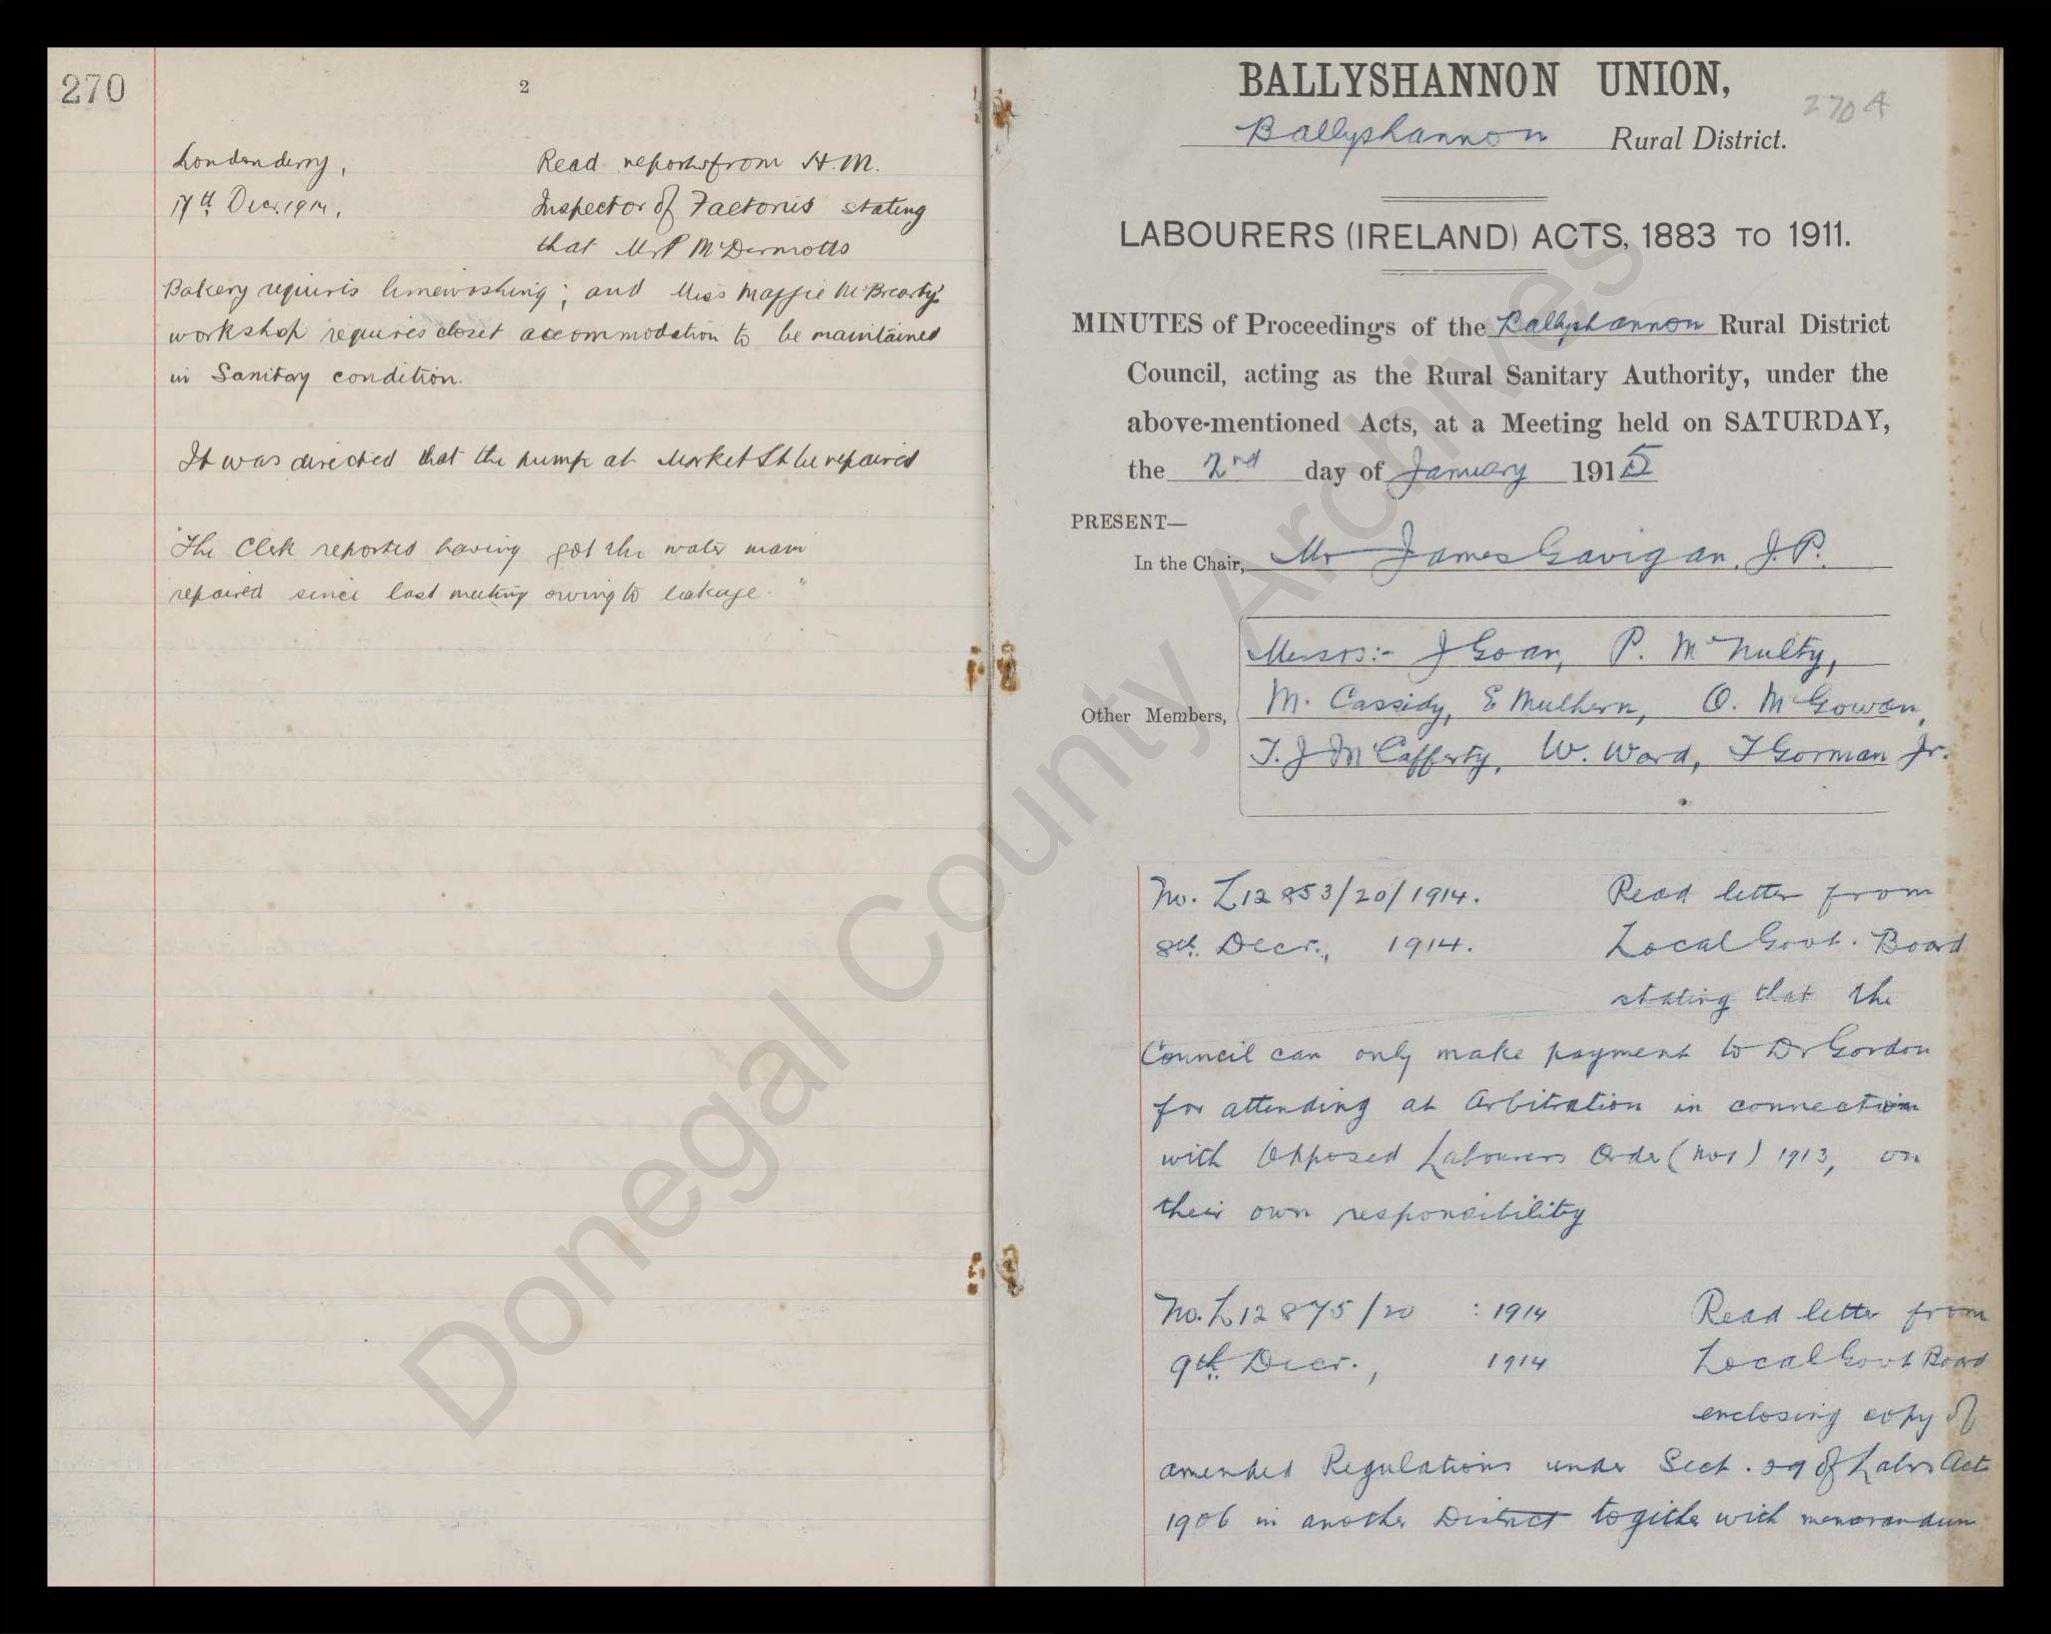 270
2
Londonderry,
17th Decr. 1914.
Read reports from H.M.
Inspector of Factories stating
that Mr P McDermotts
Bakery requires limewashing; and Miss Maggie McBrearty's
workshop requires closet accommodation to be maintained
in Sanitary condition.
It was directed that the pump at Market St be repaired
"The Clerk reported having got the water main
repaired since last meeting owing to leakage."
BALLYSHANNON UNION,
270A
Ballyshannon Rural District.
LABOURERS (IRELAND) ACTS, 1883 TO 1911.
MINUTES of Proceedings of the Ballyshannon Rural District
Council, acting as the Rural Sanitary Authority, under the
above-mentioned Acts, at a Meeting held on SATURDAY,
the 2nd day of January 1915
PRESENT—
In the Chair, Mr James Gavigan, J.P.
Other Members,
Messrs:- J Goan, P. McNulty,
M. Cassidy, E Mulhern, O. McGowan,
T. J McCafferty, W. Ward, T Gorman Jr.
No. L12853/20/1914.
8th. Decr., 1914.
Read letter from
Local Govt. Board
stating that the
Council can only make payment to Dr Gordon
for attending at Arbitration in connection
with Opposed Labourers Order (No 1) 1913, on
their own responsibility
No. L12875/20 : 1914
9th. Decr., 1914
Read letter from
Local Govt Board
enclosing copy of
amended Regulations under Sect. 29 of Labrs Act
1906 in another District together with memorandum
Donegal County Archives